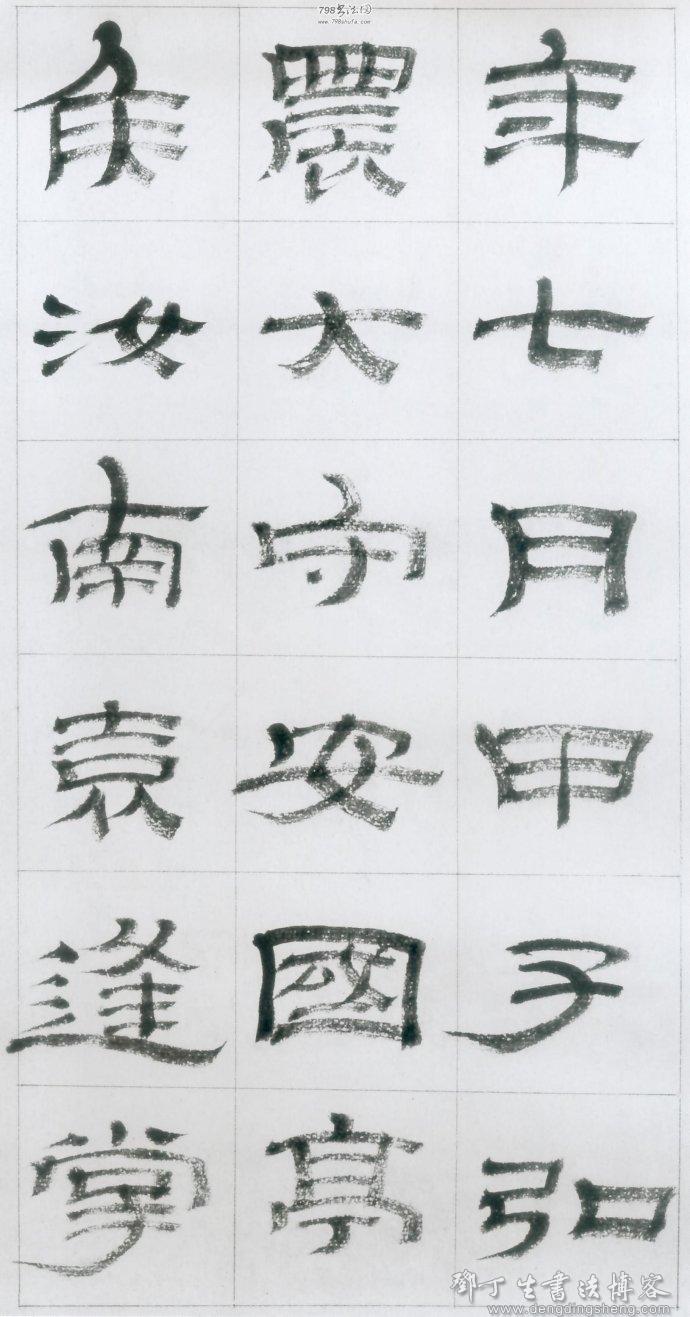 798书法网
www.798shufa.com
年七月甲子弘
農大守安國亭
侯汝南袁逢掌
鄧丁生書法博客
www.dengdingsheng.com